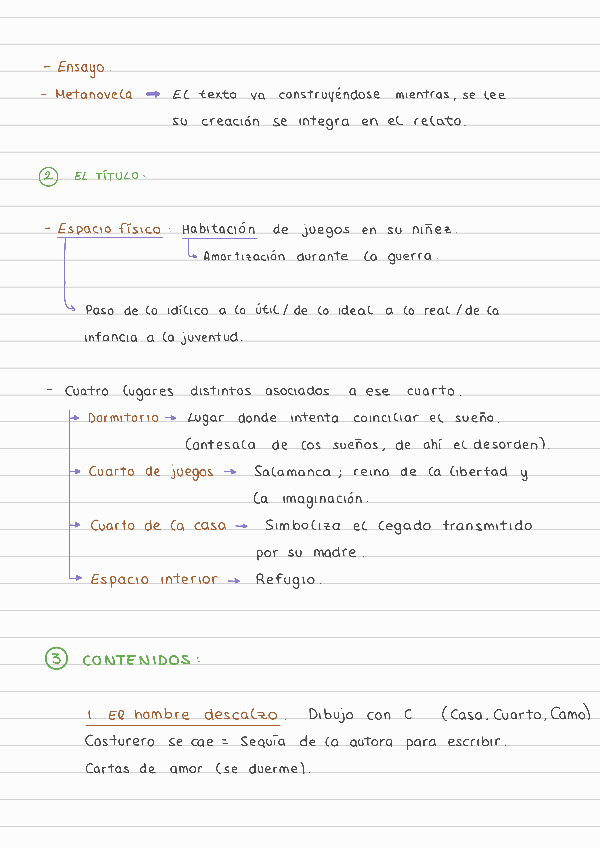 - Ensayo.
- Metanovela → El texto va construyéndose mientras, se lee
su creación se integra en el relato.
② EL TÍTULO.
- Espacio físico: Habitación de juegos en su niñez.
↳ Amortización durante la guerra.
↳ Paso de lo idílico a lo útil / de lo ideal a lo real / de la
infancia a la juventud.
- Cuatro lugares distintos asociados a ese cuarto.
→ Dormitorio → Lugar donde intenta coinciliar el sueño.
(antesala de los sueños, de ahí el desorden).
→ Cuarto de juegos → Salamanca; reino de la libertad y
la imaginación.
→ Cuarto de la casa → Simboliza el legado transmitido
por su madre.
→ Espacio interior → Refugio.
③ CONTENIDOS:
1. El hombre descalzo. Dibujo con C (Casa, Cuarto, Cama)
Costurero se cae = Sequía de la autora para escribir.
Cartas de amor (se duerme).